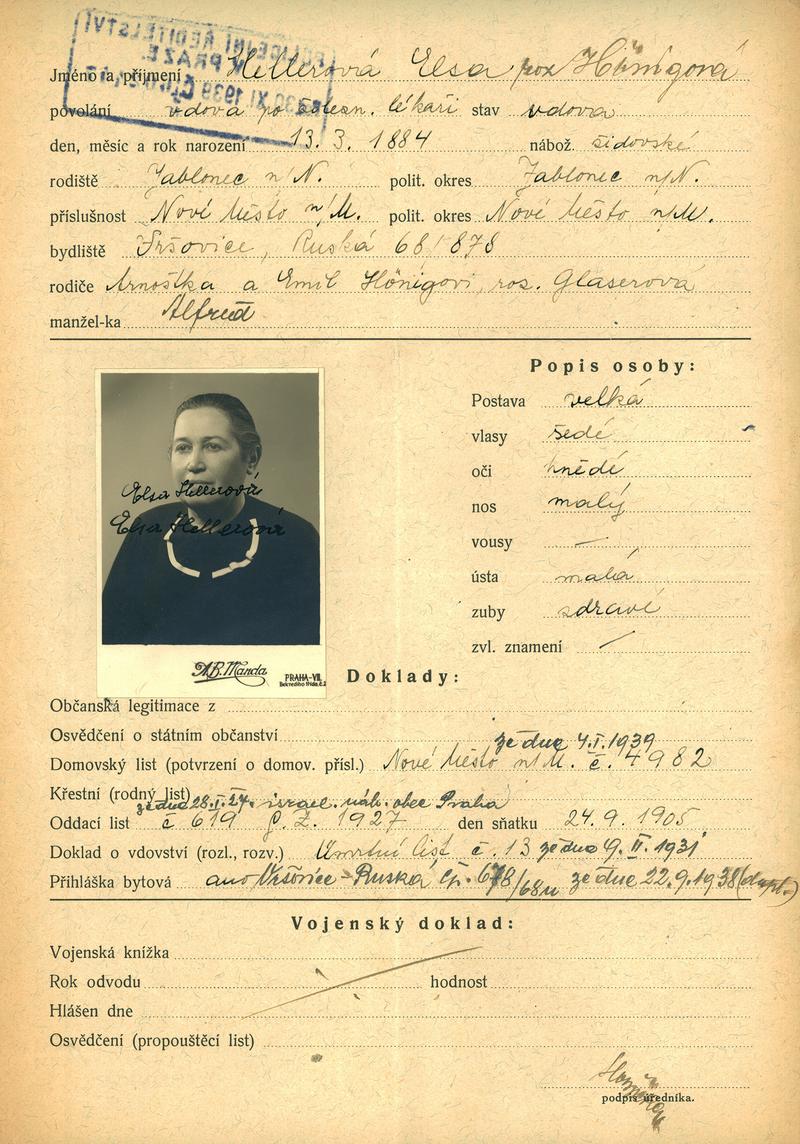 POLICEJNÍ ŘEDITELSTVÍ
V PRAZE
XI. 1939
Jméno a příjmení Hellerová Elsa roz Hönigová
povolání vdova po želesn. lékaři stav vdova
den, měsíc a rok narození 13. 3. 1884 nábož. židovské
rodiště Jablonec n/N. polit. okres Jablonec n/N.
příslušnost Nové Město n/M. polit. okres Nové Město n/M.
bydliště Vršovice, Ruská 68/878
rodiče Arnoštka a Emil Hönigovi, roz. Glaserová
manžel-ka Alfred
Popis osoby:
Postava velká
vlasy šedé
oči hnědé
nos malý
vousy —
ústa malá
zuby zdravé
zvl. znamení /
Elsa Hellerová
Elsa Hellerová
A.B. Manda
PRAHA-VII.
Doklady:
Občanská legitimace z
Osvědčení o státním občanství
ze dne 4.I.1939
Domovský list (potvrzení o domov. přísl.) Nové Město n/M. č. 4982
Křestní (rodný list)
ze dne 28.I.27. israel. náb. obec Praha
Oddací list č 619 1927 den sňatku 24.9.1905
Doklad o vdovství (rozl., rozv.) Úmrtní list č. 13 ze dne 9. II. 1931
Přihláška bytová ano Vršovice - Ruská čp. 678/68n ze dne 22.9.1938
Vojenský doklad:
Vojenská knížka
Rok odvodu hodnost
Hlášen dne
Osvědčení (propouštěcí list)
podpis úředníka.